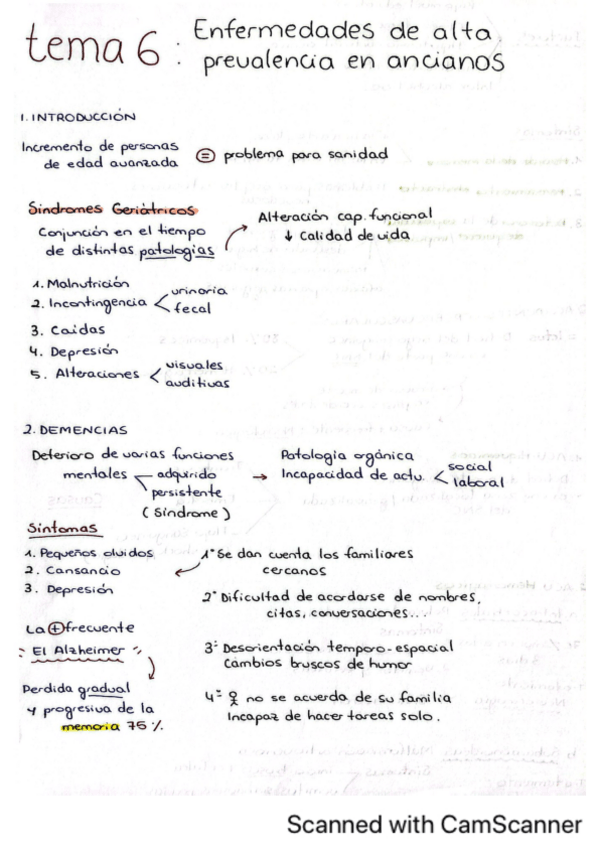 tema 6: Enfermedades de alta
prevalencia en ancianos
1. INTRODUCCIÓN
Incremento de personas
de edad avanzada = problema para sanidad
Síndromes Geriátricos
Conjunción en el tiempo
de distintas patologías
Alteración cap. funcional
↓ Calidad de vida
1. Malnutrición
2. Incontingencia < urinaria
fecal
3. Caídas
4. Depresión
5. Alteraciones < visuales
auditivas
2. DEMENCIAS
Deterioro de varias funciones
mentales adquirido
persistente
(Síndrome)
→ Patología orgánica
Incapacidad de actu. < social
laboral
Síntomas
1. Pequeños olvidos
2. Cansancio
3. Depresión
La ⊕ frecuente
" El Alzheimer "
Perdida gradual
y progresiva de la
memoria 75 %.
1º Se dan cuenta los familiares
cercanos
2º Dificultad de acordarse de nombres,
citas, conversaciones...
3º Desorientación temporo-espacial
Cambios bruscos de humor
4º no se acuerda de su familia
Incapaz de hacer tareas solo.
Scanned with CamScanner